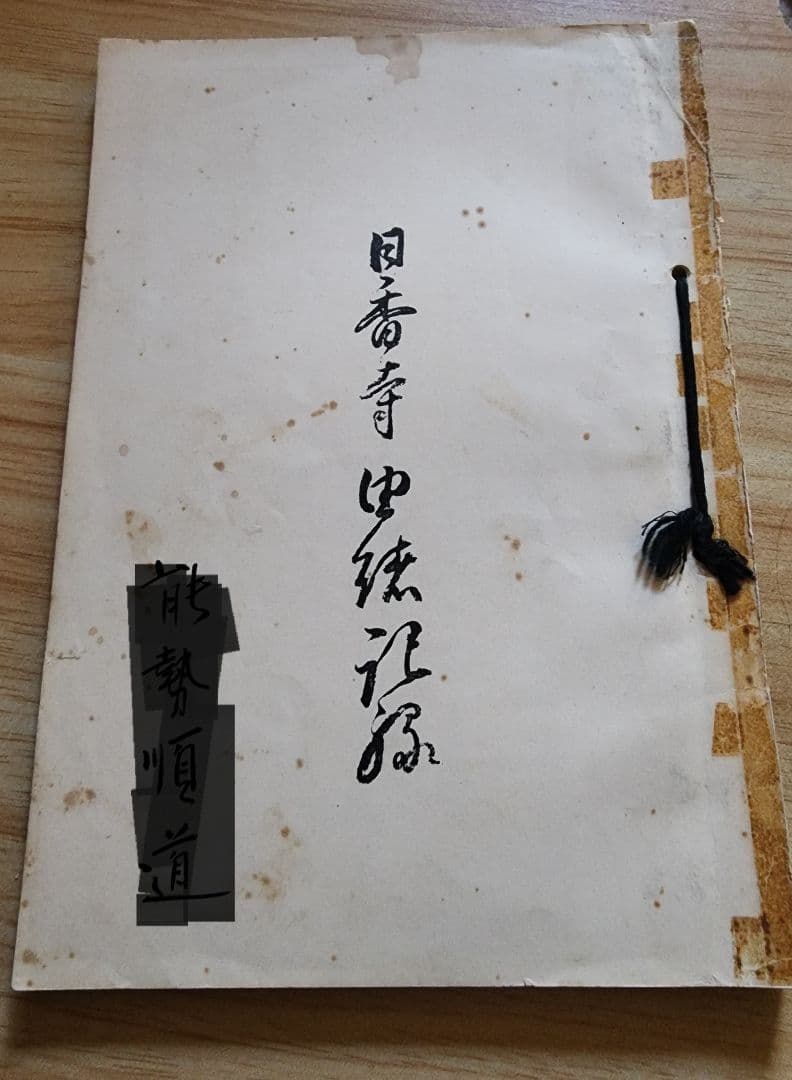 日香寺由緒記録
能勢順道